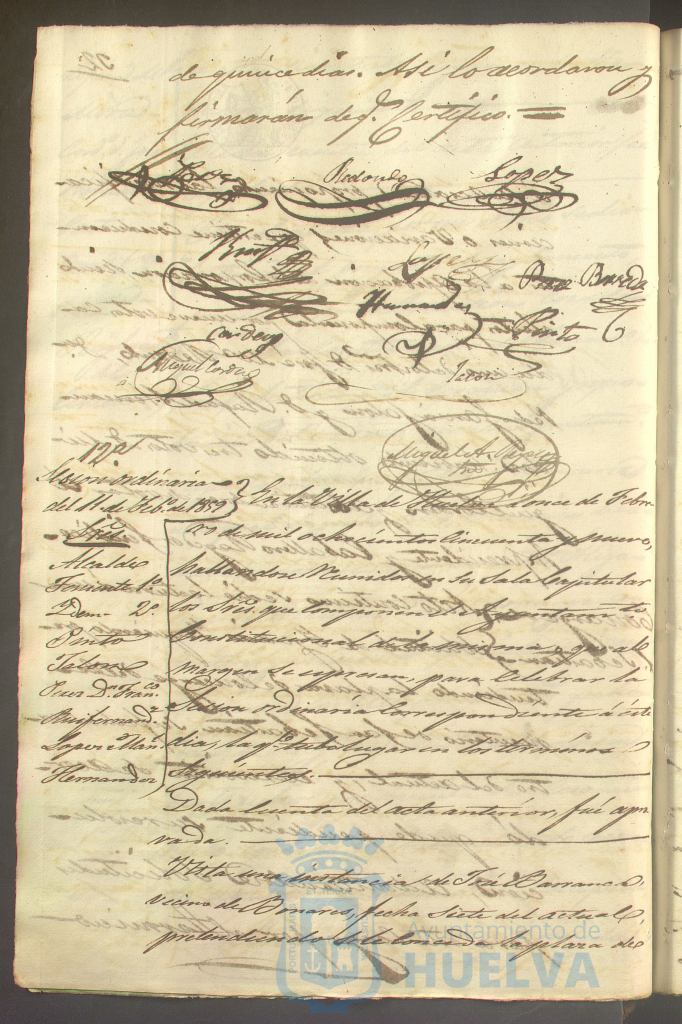 de quince dias. Asi lo acordaron y
firmarán de q.e Certifico. =
Redondo
Lopez
Hernandez
Pinto
Cordero
Miguel Cordero
Jalon
12ª
Sesion ordinaria
del 11 de Feb.o de 1859
Sres.
Alcalde
Teniente 1.o
Idem 2.o
Pinto
Jalon
Juez D.n Fran.co
Ruifernand.z
Lopez Mañ
Hernandez
En la Villa de Huelva a once de Febre-
ro de mil ochocientos cincuenta y nueve,
hallandose reunidos en su Sala Capitular
los Sres. que componen el Ayuntam.to
Constitucional de la misma y que al
margen se espresan, para celebrar la
Sesion ordinaria correspondiente á éste
dia, la q.e tubo lugar en los términos
siguientes.
Dada cuenta del acta anterior, fué apro-
vada.
Vista una instancia de José Barranca,
vecino de Bonares, fecha siete del actual,
pretendiendo se le conceda la plaza de
Ayuntamiento de
HUELVA